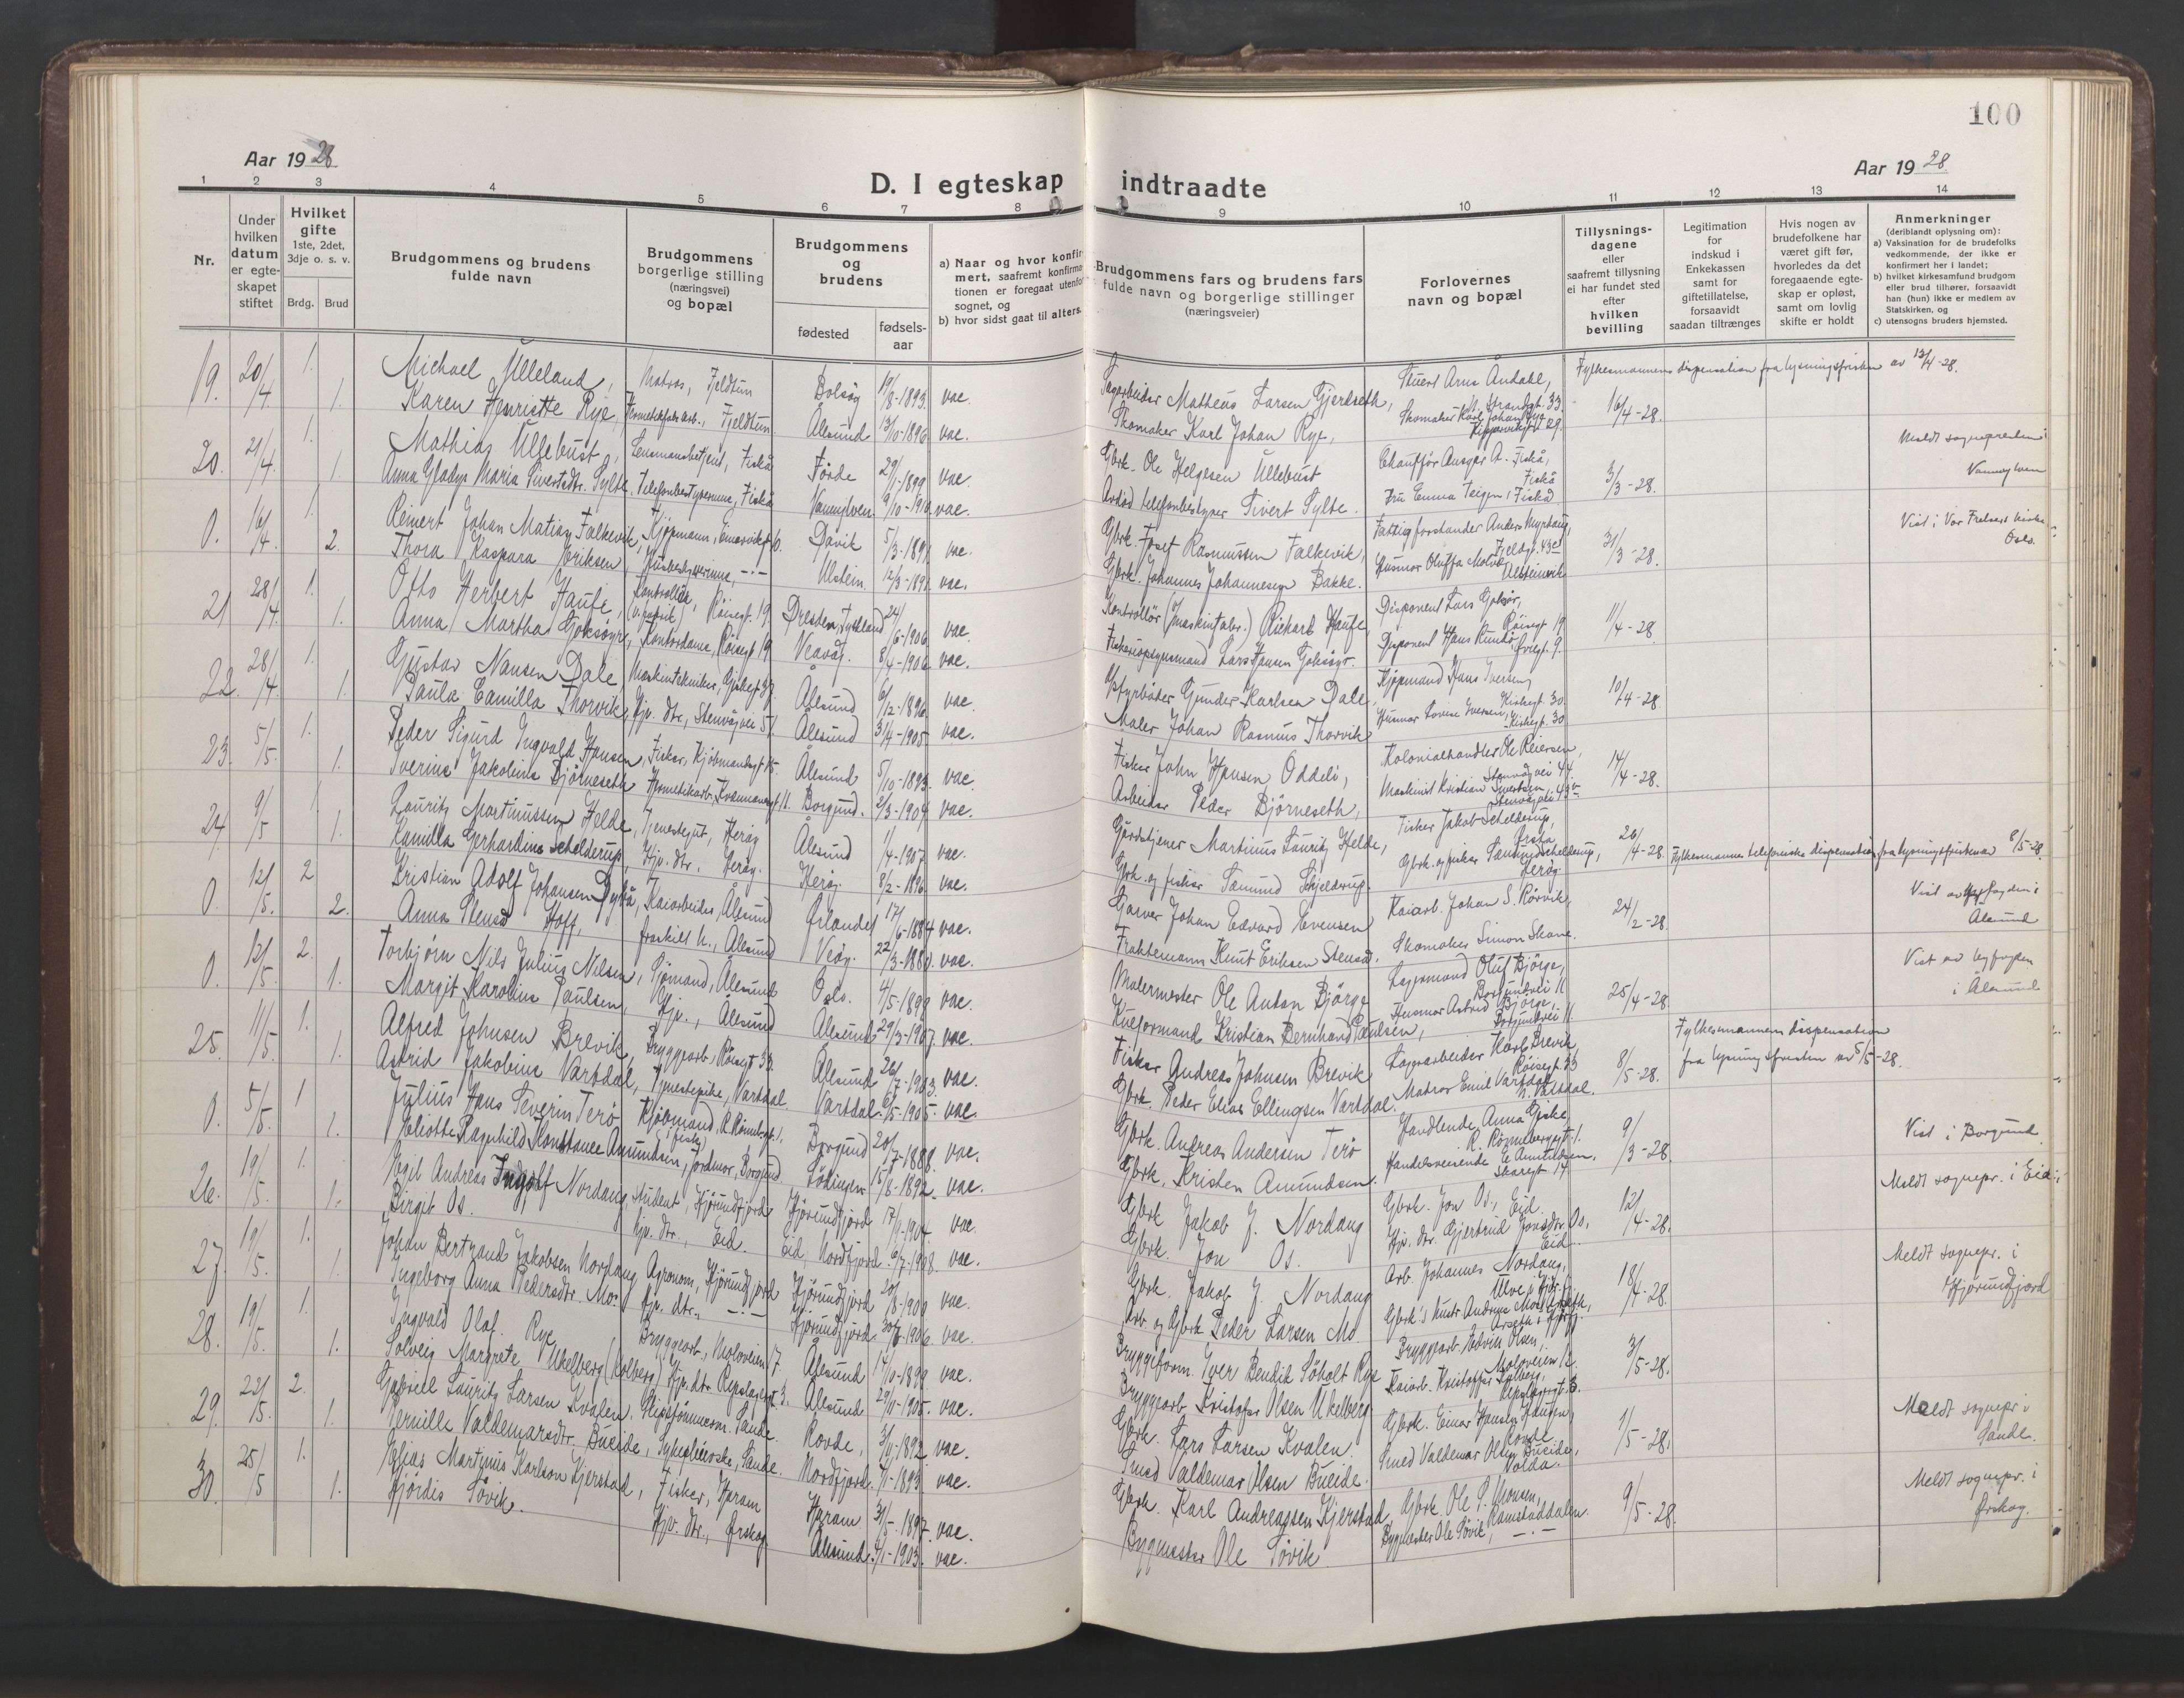 100
Aar 1928
Aar 1928
D. I egteskap indtraadte
1 2 3 4 5 6 7 8 9 10 11 12 13 14
Nr.
Under hvilken datum er egte-skapet stiftet
Hvilket gifte 1ste, 2det, 3dje o. s. v.
Brdg. Brud
Brudgommens og brudens fulde navn
Brudgommens borgerlige stilling (næringsvei) og bopæl
Brudgommens og brudens
fødested
fødsels-aar
a) Naar og hvor konfir-
mert, saafremt konfirma-
tionen er foregaat utenfor
sognet, og
b) hvor sidst gaat til alters.
Brudgommens fars og brudens fars
fulde navn og borgerlige stillinger
(næringsveier)
Forlovernes
navn og bopæl
Tillysnings-
dagene
eller
saafremt tillysning
ei har fundet sted
efter
hvilken
bevilling
Legitimation
for
indskud i
Enkekassen
samt for
giftetillatelse,
forsaavidt
saadan tiltrænges
Hvis nogen av
brudefolkene har
været gift før,
hvorledes da det
foregaaende egte-
skap er opløst,
samt om lovlig
skifte er holdt
Anmerkninger
(deriblandt oplysning om):
a) Vaksination for de brudefolks
vedkommende, der ikke er
konfirmert her i landet;
b) hvilket kirkesamfund brudgom
eller brud tilhører, forsaavidt
han (hun) ikke er medlem av
Statskirken, og
c) utensogns bruders hjemsted.
19. 20/4 1. Michael Ulleland, Matros, Fjeldtun Bolsøy 19/8-1893. vac. Matheus Larsen Gjerdseth, Stuert Arne Åndahl, Fylkesmannens dispensation fra lysningsfristen av 13/4-28.
1. Karen Henriette Rye, Fjeldtun Ålesund 13/10-1896 vac. Skomaker Karl Johan Rye, Skomaker Karl Johan Rye 16/4-28.
20. 21/4 1. Mathias Ullebust, Lensmansbetjent, Fiskå Førde 29/1-1899 vac. Gbrk. Ole Helgesen Ullebust Chauffør Ansgar A. Fiskå, Fiskå 3/3-28. Meldt sognepresten i
1. Anna Gladys Maria Sivertsdtr. Sylte, Telefonbestyrerinne, Fiskå Vannylven 9/10-1910 vac. Avdød telefonbestyrer Sivert Sylte. Fru Emma Teigen, Fiskå Vannylven
0. 16/4 1. Reinert Johan Matias Falkevik, Kjøpmann, Davik 5/3-1891 vac. Gbrk. Josef Rasmussen Falkevik, Fattigforstander Anders Myrtaug, Fjeldgt. 43 31/3-28. Viet i Vor Frelsers kirke
2. Thora Kaspara Eriksen, Husbestyrerinne, -"- Ulstein. 12/3-1891 vac. Gbrk. Johannes Johannesen Bakke. Husmor Oluffa Molvær, Ulsteinvik Oslo.
21 28/4. 1. Otto Herbert Haufe, Kontrollør, Röisegt. 19 Dresden, Tyskland 24/6-1906 vac. Kontrollör (maskinfabr.) Richard Haufe, Disponent Lars Goksør, Röisegt 19 11/4-28
1. Anna Martha Goksøyr, Kontordame, Röisegt. 19 Veavåg. 8/4-1906 vac. Fiskeriopsynsmand Lars Hansen Goksøyr. Disponent Hans Runde,
22. 28/4. 1. Gustav Nansen Dale, Maskintekniker, Ålesund 6/12-1896. vac. Gunder Karlsen Dale, Kjøpmand Hans Iversen, Kirkegt. 30. 10/4-28.
1. Paula Camilla Thorvik, Hjv. dtr., Stenvågvei 51 Ålesund 31/7-1905 vac. Maler Johan Rasmus Thorvik Husmor Lovise Iversen, Kirkegt. 30
23. 5/5. 1. Peder Sigurd Ingvald Hansen, Fisker, Kjøbmandsgt. 15. Ålesund 5/10-1893. vac. Fisker John Hansen Oddeli, Kolonialhandler Ole Reiersen, Stenvågvei 44. 14/4-28.
1. Sverine Jakobine Björneseth Hermetikarb., Borgund. 2/3-1904 vac. Arbeider Peder Björneseth, Maskinist Kristian Sivertsen,
24. 9/5 1. Laurits Martinussen Helde, Tjenestegut, Herøy Ålesund 1/4-1907. vac. Gårdstjener Martinus Laurits Helde, Fisker Jakob Schelderup, 26/4-28. Fylkesmannens telefoniske dispensation fra lysningsfristen av 8/5-28.
1. Kamilla Gerhardine Schelderup, Hjv. dtr. Herøy. Herøy. 8/2-1896. vac. Gbrk. og fisker Samund Schjelderup. Gbrk. og fisker Samund Schelderup, Herøy.
0. 12/5. 2 Kristian Adolf Johansen Dybå, Kaiarbeider, Ålesund Ørlandet 17/6-1884 vac. Garver Johan Edvard Evensen Kaiarb. Johan S. Rörvik, 24/2-28. Viet av byfogden i
2. Anna Stensø Hoff, fraskilt h., Ålesund Veøy. 22/3-1880. vac. Fraktemann Knut Eriksen Stensø. Skomaker Simon Skare. Ålesund
0. 12/5. 2. Torbjørn Nils Julius Nilsen, Sjømand, Ålesund Oslo. 4/5-1899 vac. Malermester Ole Anton Bjørge Lagermand Oluf Bjørge, Borgundvei 11 25/4-28 Viet av byfogden
1. Margit Karoline Paulsen, Hjv., Ålesund Ålesund 29/3-1907. vac. Kulformand Kristian Bernhard Paulsen, Husmor Astrid Bjørge, Borgundvei 11 i Ålesund
25. 11/5. 1. Alfred Johnsen Brevik, Bryggearb., Röisegt 33. Ålesund 26/7-1903. vac. Fisker Andreas Johnsen Brevik Lagerarbeider Karl Brevik, Röisegt. 33 8/5-28. Fylkesmannens dispensation
1. Astrid Jakobine Vartdal, Tjenestepike, Vartdal. Vartdal. 6/5-1905. vac Gbrk. Peder Elias Ellingsen Vartdal. Matros Emil Vartdal, N. Vartdal. fra lysningsfristen av 5/5-28.
0. 5/5. 1 Julius Hans Severin Terö Kjøbmand, R. Rønnebgt. 1. Borgund 20/7-1888. vac. Gbrk. Andreas Andersen Terö Handlende Anna Giske R. Rønnebergsgt. 1. 9/3-28. Viet i Borgund
1. Eliotte Ragnhild Konstance Amundsen, Jordmor, Borgund Lödingen 15/8-1892. vac. Gbrk. Kristen Amundsen. Handelsreisende E. Amundsen, Skaregt. 17
26. 19/5. 1. Egil Andreas Ingolf Nordang, student, Hjørundfjord Hjørundfjord 17/9-1904 vac. Gbrk Jakob J. Nordang Gbrk. Jon Os, Eid. 12/4-28. Meldt sognepr. i Eid
1. Birgit Os. hjv. dtr., Eid. Eid, Nordfjord. 6/7-1908. vac. Gbrk. Jon Os. Hjv. dtr. Gjertrud Jonsdtr. Os, Eid
27. 19/5. 1. Johan Bertrand Jakobsen Nordang Agronom, Hjørundfjord Hjørundfjord 20/8-1900 vac. Gbrk. Jakob J. Nordang Arb. Johannes Nordang, 18/4-28. Meldt sognepr. i
1. Ingeborg Anna Pedersdtr. Mo. Hjv. dtr. -"- Hjørundfjord 1906 vac. Arb og Gbrk Peder Larsen Mo Hjørundfjord
28. 19/5. 1. Ingvald Olaf Rye Bryggearb., Moloveien 17 Ålesund 14/10-1899 vac. Bryggeform. Iver Bendik Söholt Rye Bryggearb. Edvin Olsen, Moloveien 12. 3/5-28.
1. Solveig Margrete Ukelberg (Kolberg) Hjv. dtr. Repslagergt. 3. Ålesund 29/11-1905. vac. Bryggearb. Kristofer Olsen Ukelberg Kaiarb. Kristoffer Kolberg, Repslagergt. 3.
29. 22/5. 2. Gabriel Laurits Larsen Kvalen, Sande. Rovde, 3/11-1892 vac. Gbrk. Lars Larsen Kvalen. Gbrk. Einar Hansen Hauge, Rovde 1/5-28. Meldt sognepr i
1. Pernille Valdemarsdtr. Bueide, Sykepleierske, Sande. Nordfjord. 7/1-1893 vac. Smed Valdemar Olsen Bueide. Smed Valdemar Olsen Bueide, Volda. Sande.
30. 25/5 1. Elias Martinus Karlson Kjerstad, Fisker, Haram Haram 31/5-1897. vac. Gbrk. Karl Andreassen Kjerstad, Gbrk. Ole P. Monsen, Ramstaddalen. 9/5-28. Meldt sognepr. i
1. Hjördis Søvik. Hjv. dtr., Ørskog Ålesund. 4/1-1903. vac. Bygmester Ole Søvik. Bygmester Ole Søvik, -"- Ørskog.